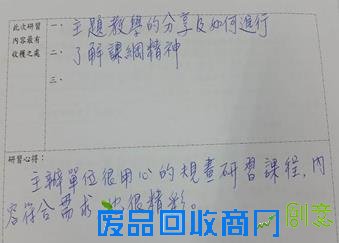 此次研習
內容最有
收穫之處
一、主題教學的分享及如何進行
二、了解課綱精神
三、
研習心得：
主辦單位很用心的規畫研習課程，內
容符合需求，也很精彩。
废品回收商网
创意